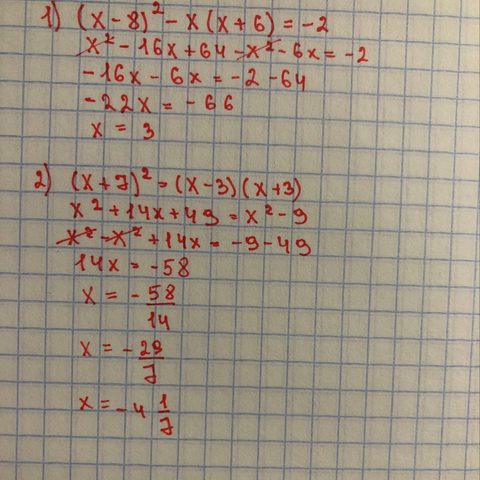 1) (x - 8)² - x(x + 6) = -2
x² - 16x + 64 - x² - 6x = -2
-16x - 6x = -2 - 64
-22x = -66
x = 3
2) (x + 7)² = (x - 3)(x + 3)
x² + 14x + 49 = x² - 9
x² - x² + 14x = -9 - 49
14x = -58
x = - 58/14
x = - 29/7
x = -4 1/7